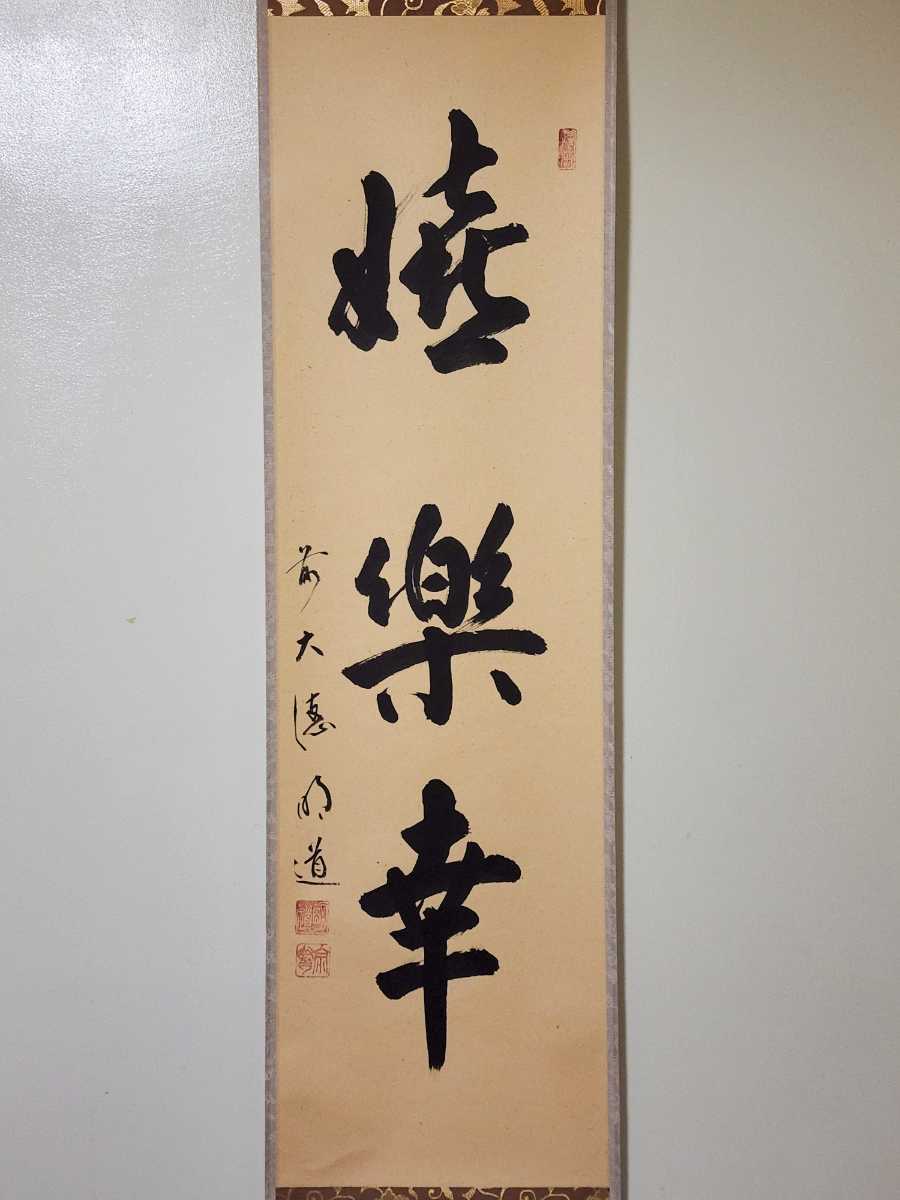 嬉樂幸
前大德明道